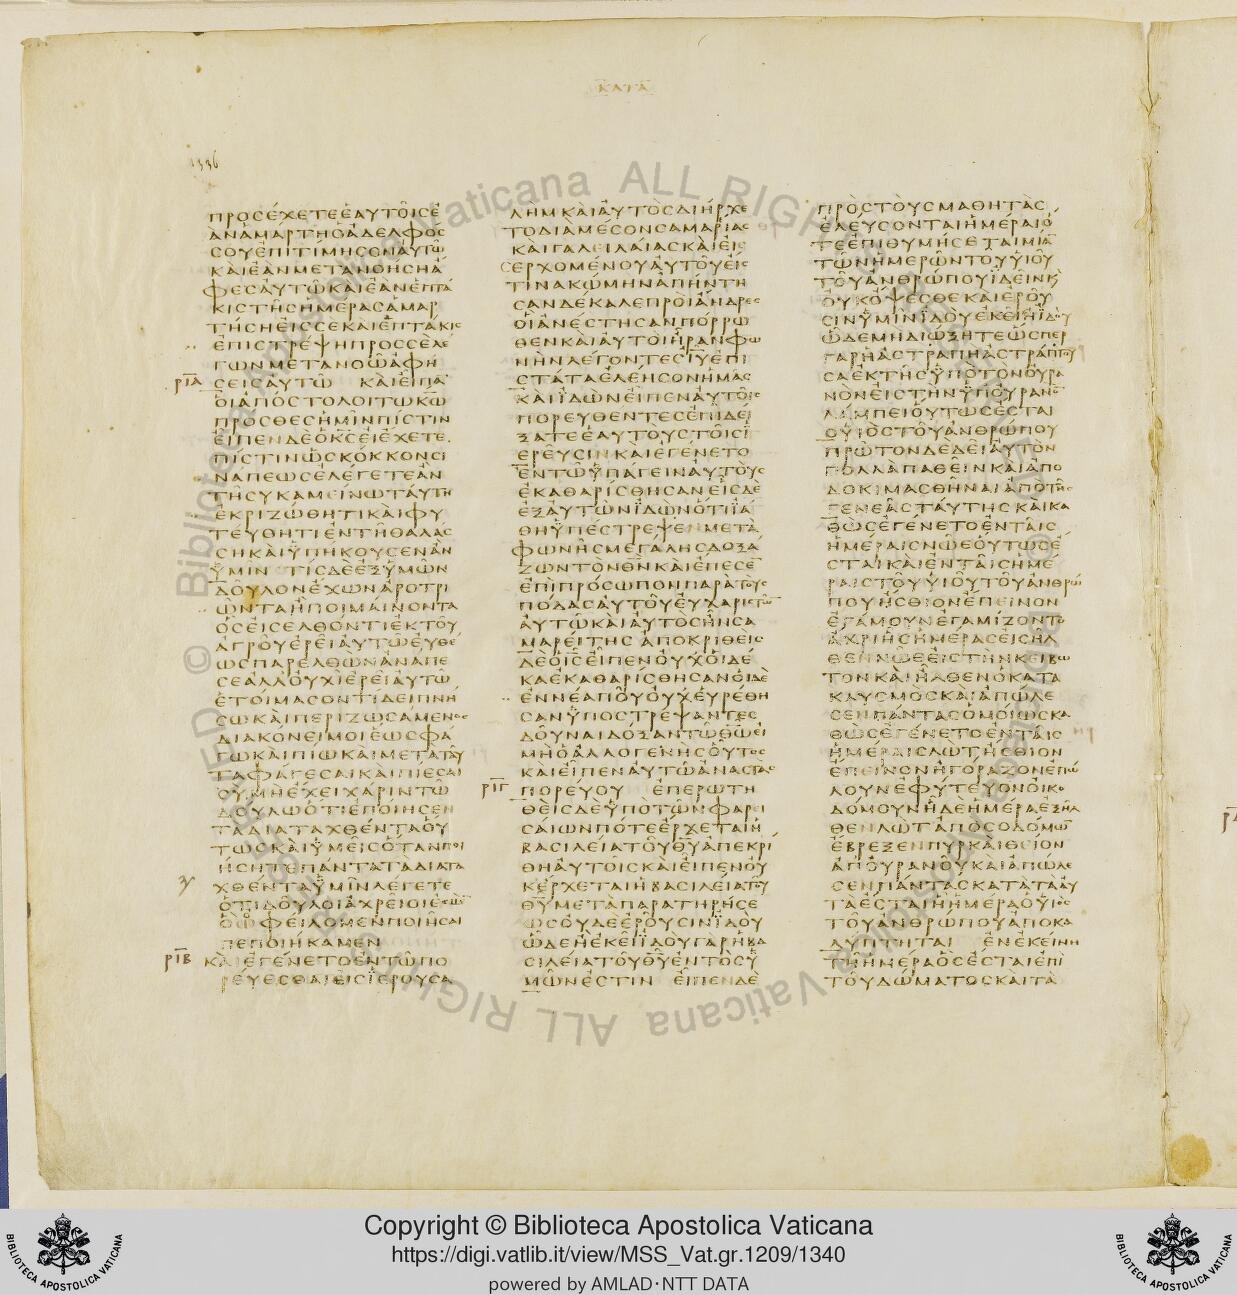 ΚΑΤΑ
1336
ΠΡΟΣΕΧΕΤΕΕΑΥΤΟΙΣΕ
ΑΝΑΜΑΡΤΗΟΑΔΕΛΦΟΣ
ΣΟΥΕΠΙΤΙΜΗΣΟΝΑΥΤΩ
ΚΑΙΕΑΝΜΕΤΑΝΟΗΣΗΑ
ΦΕΣΑΥΤΩΚΑΙΕΑΝΕΠΤΑ
ΚΙΣΤΗΣΗΜΕΡΑΣΑΜΑΡ
ΤΗΣΗΕΙΣΣΕΚΑΙΕΠΤΑΚΙΣ
ΕΠΙΣΤΡΕΨΗΠΡΟΣΣΕΛΕ
ΓΩΝΜΕΤΑΝΟΩΑΦΗ
ΡΙΑ ΣΕΙΣΑΥΤΩ ΚΑΙΕΙΠΑ
ΟΙΑΠΟΣΤΟΛΟΙΤΩΚΩ
ΠΡΟΣΘΕΣΗΜΙΝΠΙΣΤΙΝ
ΕΙΠΕΝΔΕΟΚΣΕΙΕΧΕΤΕ
ΠΙΣΤΙΝΩΣΚΟΚΚΟΝΣΙ
ΝΑΠΕΩΣΕΛΕΓΕΤΕΑΝ
ΤΗΣΥΚΑΜΕΙΝΩΤΑΥΤΗ
ΕΚΡΙΖΩΘΗΤΙΚΑΙΦΥ
ΤΕΥΘΗΤΙΕΝΤΗΘΑΛΑΣ
ΣΗΚΑΙΫΠΗΚΟΥΣΕΝΑΝ
ΫΜΙΝ ΤΙΣΔΕΕΞΫΜΩΝ
ΔΟΥΛΟΝΕΧΩΝΑΡΟΤΡΙ
ΩΝΤΑΗΠΟΙΜΑΙΝΟΝΤΑ
ΟΣΕΙΣΕΛΘΟΝΤΙΕΚΤΟΥ
ΑΓΡΟΥΕΡΕΙΑΥΤΩΕΥΘΕ
ΩΣΠΑΡΕΛΘΩΝΑΝΑΠΕ
ΣΕΑΛΛΟΥΧΙΕΡΕΙΑΥΤΩ
ΕΤΟΙΜΑΣΟΝΤΙΔΕΙΠΝΗ
ΣΩΚΑΙΠΕΡΙΖΩΣΑΜΕΝΟΣ
ΔΙΑΚΟΝΕΙΜΟΙΕΩΣΦΑ
ΓΩΚΑΙΠΙΩΚΑΙΜΕΤΑΤΑΥ
ΤΑΦΑΓΕΣΑΙΚΑΙΠΙΕΣΑΙ
ΣΥΜΗΕΧΕΙΧΑΡΙΝΤΩ
ΔΟΥΛΩΟΤΙΕΠΟΙΗΣΕΝ
ΤΑΔΙΑΤΑΧΘΕΝΤΑΟΥ
ΤΩΣΚΑΙΫΜΕΙΣΟΤΑΝΠΟΙ
ΗΣΗΤΕΠΑΝΤΑΤΑΔΙΑΤΑ
ΧΘΕΝΤΑΫΜΙΝΛΕΓΕΤΕ
ΟΤΙΔΟΥΛΟΙΑΧΡΕΙΟΙΕΣΜΕΝ
ΟΩΦΕΙΛΟΜΕΝΠΟΙΗΣΑΙ
ΠΕΠΟΙΗΚΑΜΕΝ
ΡΙΒ ΚΑΙΕΓΕΝΕΤΟΕΝΤΩΠΟ
ΡΕΥΕΣΘΑΙΕΙΣΪΕΡΟΥΣΑ
ΛΗΜΚΑΙΑΥΤΟΣΔΙΗΡΧΕ
ΤΟΔΙΑΜΕΣΟΝΣΑΜΑΡΙΑΣ
ΚΑΙΓΑΛΕΙΛΑΙΑΣΚΑΙΕΙΣ
ΕΡΧΟΜΕΝΟΥΑΥΤΟΥΕΙΣ
ΤΙΝΑΚΩΜΗΝΑΠΗΝΤΗ
ΣΑΝΔΕΚΑΛΕΠΡΟΙΑΝΔΡΕΣ
ΟΙΑΝΕΣΤΗΣΑΝΠΟΡΡΩ
ΘΕΝΚΑΙΑΥΤΟΙΗΡΑΝΦΩ
ΝΗΝΛΕΓΟΝΤΕΣΙΥΕΠΙ
ΣΤΑΤΑΕΛΕΗΣΟΝΗΜΑΣ
ΚΑΙΪΔΩΝΕΙΠΕΝΑΥΤΟΙΣ
ΠΟΡΕΥΘΕΝΤΕΣΕΠΙΔΕΙ
ΞΑΤΕΕΑΥΤΟΥΣΤΟΙΣΪ
ΕΡΕΥΣΙΝΚΑΙΕΓΕΝΕΤΟ
ΕΝΤΩΫΠΑΓΕΙΝΑΥΤΟΥΣ
ΕΚΑΘΑΡΙΣΘΗΣΑΝΕΙΣΔΕ
ΕΞΑΥΤΩΝΪΔΩΝΟΤΙΪΑ
ΘΗΫΠΕΣΤΡΕΨΕΝΜΕΤΑ
ΦΩΝΗΣΜΕΓΑΛΗΣΔΟΞΑ
ΖΩΝΤΟΝΘΝΚΑΙΕΠΕΣΕ
ΕΠΙΠΡΟΣΩΠΟΝΠΑΡΑΤΟΥΣ
ΠΟΔΑΣΑΥΤΟΥΕΥΧΑΡΙΣΤΩ
ΑΥΤΩΚΑΙΑΥΤΟΣΗΝΣΑ
ΜΑΡΕΙΤΗΣ ΑΠΟΚΡΙΘΕΙΣ
ΔΕΟΙΣΕΙΠΕΝΟΥΧΟΙΔΕ
ΚΑΕΚΑΘΑΡΙΣΘΗΣΑΝΟΙΔΕ
ΕΝΝΕΑΠΟΥΟΥΧΕΥΡΕΘΗ
ΣΑΝΫΠΟΣΤΡΕΨΑΝΤΕΣ
ΔΟΥΝΑΙΔΟΞΑΝΤΩΘΩΕΙ
ΜΗΟΑΛΛΟΓΕΝΗΣΟΥΤΟΣ
ΚΑΙΕΙΠΕΝΑΥΤΩΑΝΑΣΤΑΣ
ΡΙΓ ΠΟΡΕΥΟΥ ΕΠΕΡΩΤΗ
ΘΕΙΣΔΕΫΠΟΤΩΝΦΑΡΕΙ
ΣΑΙΩΝΠΟΤΕΕΡΧΕΤΑΙΗ
ΒΑΣΙΛΕΙΑΤΟΥΘΥΑΠΕΚΡΙ
ΘΗΑΥΤΟΙΣΚΑΙΕΙΠΕΝΟΥ
ΚΕΡΧΕΤΑΙΗΒΑΣΙΛΕΙΑΤΟΥ
ΘΥΜΕΤΑΠΑΡΑΤΗΡΗΣΕ
ΩΣΟΥΔΕΕΡΟΥΣΙΝΪΔΟΥ
ΩΔΕΗΕΚΕΙΪΔΟΥΓΑΡΗΒΑ
ΣΙΛΕΙΑΤΟΥΘΥΕΝΤΟΣΫ
ΜΩΝΕΣΤΙΝ ΕΙΠΕΝΔΕ
ΠΡΟΣΤΟΥΣΜΑΘΗΤΑΣ
ΕΛΕΥΣΟΝΤΑΙΗΜΕΡΑΙΟ
ΤΕΕΠΙΘΥΜΗΣΕΤΑΙΜΙΑ
ΤΩΝΗΜΕΡΩΝΤΟΥΥΙΟΥ
ΤΟΥΑΝΘΡΩΠΟΥΪΔΕΙΝΚ
ΟΥΚΟΨΕΣΘΕΚΑΙΕΡΟΥ
ΣΙΝΫΜΙΝΪΔΟΥΕΚΕΙΗΪΔΟΥ
ΩΔΕΜΗΔΙΩΞΗΤΕΩΣΠΕΡ
ΓΑΡΗΑΣΤΡΑΠΗΑΣΤΡΑΠΤΟΥ
ΣΑΕΚΤΗΣΫΠΟΤΟΝΟΥΡΑ
ΝΟΝΕΙΣΤΗΝΫΠΟΥΡΑΝΟ
ΛΑΜΠΕΙΟΥΤΩΣΕΣΤΑΙ
ΟΥΙΟΣΤΟΥΑΝΘΡΩΠΟΥ
ΠΡΩΤΟΝΔΕΔΕΙΑΥΤΟΝ
ΠΟΛΛΑΠΑΘΕΙΝΚΑΙΑΠΟ
ΔΟΚΙΜΑΣΘΗΝΑΙΑΠΟΤΗΣ
ΓΕΝΕΑΣΤΑΥΤΗΣΚΑΙΚΑ
ΘΩΣΕΓΕΝΕΤΟΕΝΤΑΙΣ
ΗΜΕΡΑΙΣΝΩΕΟΥΤΩΣΕ
ΣΤΑΙΚΑΙΕΝΤΑΙΣΗΜΕ
ΡΑΙΣΤΟΥΥΙΟΥΤΟΥΑΝΘΡΩ
ΠΟΥΗΣΘΙΟΝΕΠΕΙΝΟΝ
ΕΓΑΜΟΥΝΕΓΑΜΙΖΟΝΤΟ
ΑΧΡΙΗΣΗΜΕΡΑΣΕΙΣΗΛ
ΘΕΝΝΩΕΕΙΣΤΗΝΚΕΙΒΩ
ΤΟΝΚΑΙΗΛΘΕΝΟΚΑΤΑ
ΚΛΥΣΜΟΣΚΑΙΑΠΩΛΕ
ΣΕΝΠΑΝΤΑΣΟΜΟΙΩΣΚΑ
ΘΩΣΕΓΕΝΕΤΟΕΝΤΑΙΣ
ΗΜΕΡΑΙΣΛΩΤΗΣΘΙΟΝ
ΕΠΕΙΝΟΝΗΓΟΡΑΖΟΝΕΠΩ
ΛΟΥΝΕΦΥΤΕΥΟΝΟΙΚΟ
ΔΟΜΟΥΝΗΔΕΗΜΕΡΑΕΞΗΛ
ΘΕΝΛΩΤΑΠΟΣΟΔΟΜΩ
ΕΒΡΕΞΕΝΠΥΡΚΑΙΘΕΙΟΝ
ΑΠΟΥΡΑΝΟΥΚΑΙΑΠΩΛΕ
ΣΕΝΠΑΝΤΑΣΚΑΤΑΤΑΑΥ
ΤΑΕΣΤΑΙΗΗΜΕΡΑΟΥΙΟΣ
ΤΟΥΑΝΘΡΩΠΟΥΑΠΟΚΑ
ΛΥΠΤΗΤΑΙ ΕΝΕΚΕΙΝΗ
ΤΗΗΜΕΡΑΟΣΕΣΤΑΙΕΠΙ
ΤΟΥΔΩΜΑΤΟΣΚΑΙΤΑ
Copyright © Biblioteca Apostolica Vaticana
https://digi.vatlib.it/view/MSS_Vat.gr.1209/1340
powered by AMLAD·NTT DATA
BIBLIOTECA APOSTOLICA VATICANA
BIBLIOTECA APOSTOLICA VATICANA